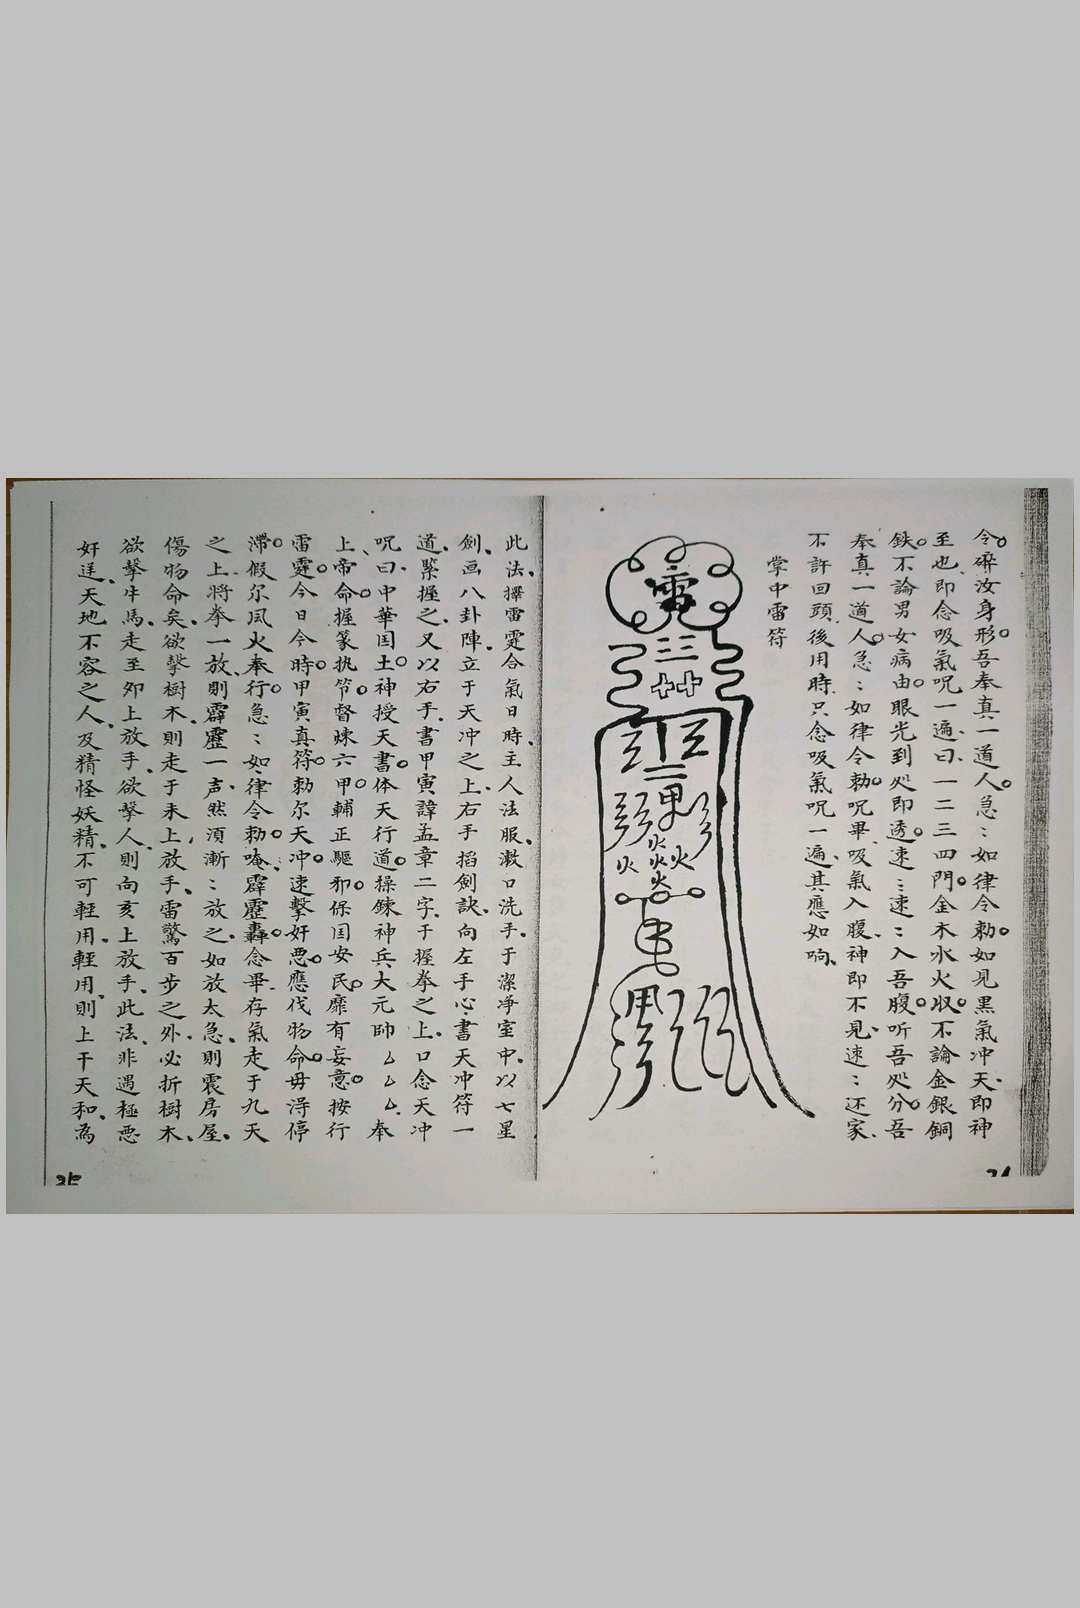 令磨汝身形。吾奉真一道人。急:如律令勅。如見黑氣冲天、即神
至也、即念吸氣咒一遍、曰、一二三四門。金木水火収。不論金銀銅
鉄。不論男女病由。眼光到処即透。速:速:入吾腹。听吾処分。吾
奉真一道人。急:如律令勅。咒畢、吸氣入腹、神即不見、速:还家、
不許回頭、後用時、只念吸氣咒一遍、其應如响、
掌中雷符
雷
三
甲
火炎火
炎
此法、擇雷霆合氣日時、主人法服、漱口洗手、于潔凈室中、以七星
劍、画八卦陣、立于天冲之上、右手掐劍訣、向左手心、書天冲符一
道、緊握之、又以右手、書甲寅諱孟章二字、于握拳之上、口念天冲
咒曰、中華囯土神授天書。体天行道。操鍊神兵大元帥厶厶厶、奉
上、帝命。握篆执笴。督竦六甲。輔正驅邪。保囯安民。靡有妄意。按行
雷霆。今日今時。甲寅真符。勅尔天冲。速擊奸悪。應伐物命。毋淂停
滯。假尔風火奉行。急:如律令勅。唵、霹靂轟。念畢、存氣走于九天
之上、將拳一放、則霹靂一声、然須漸:放之、如放太急、則震房屋、
傷物命矣、欲擊樹木、則走于未上放手、雷驚百步之外、必折樹木、
欲擊牛馬、走至夘上放手、欲擊人、則向亥上放手、此法、非遇極悪
奸逆、天地不容之人、及精怪妖精、不可輕用、輕用、則上干天和、為
35